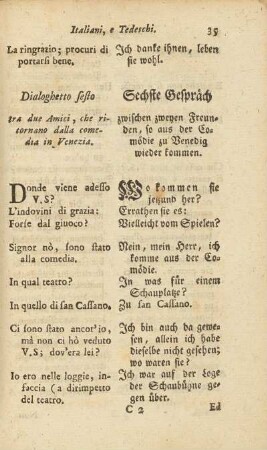 Italiani, e Tedeschi. 35
La ringrazio; procuri di
portarsi bene.
Ich danke ihnen, leben
sie wohl.
Dialoghetto sesto
tra due Amici, che ri-
tornano dalla come-
dia in Venezia.
Sechste Gespräch
zwischen zweyen Freun-
den, so aus der Co-
mödie zu Venedig
wieder kommen.
Donde viene adesso
V.S?
Wo kommen sie
jetzund her?
L'indovini di grazia:
Errathen sie es:
Forse dal giuoco?
Vielleicht vom Spielen?
Signor nò, sono stato
alla comedia.
Nein, mein Herr, ich
komme aus der Co-
mödie.
In qual teatro?
In was für einem
Schauplatze?
In quello di san Cassano.
Zu san Cassano.
Ci sono stato ancor'io,
mà non ci hò veduto
V.S; dov'era lei?
Ich bin auch da gewe-
sen, allein ich habe
dieselbe nicht gesehen;
wo waren sie?
Io ero nelle loggie, in-
faccia (a dirimpetto
del teatro.
Ich war auf der Loge
der Schaubüzne ge-
gen über.
C 2 Ed